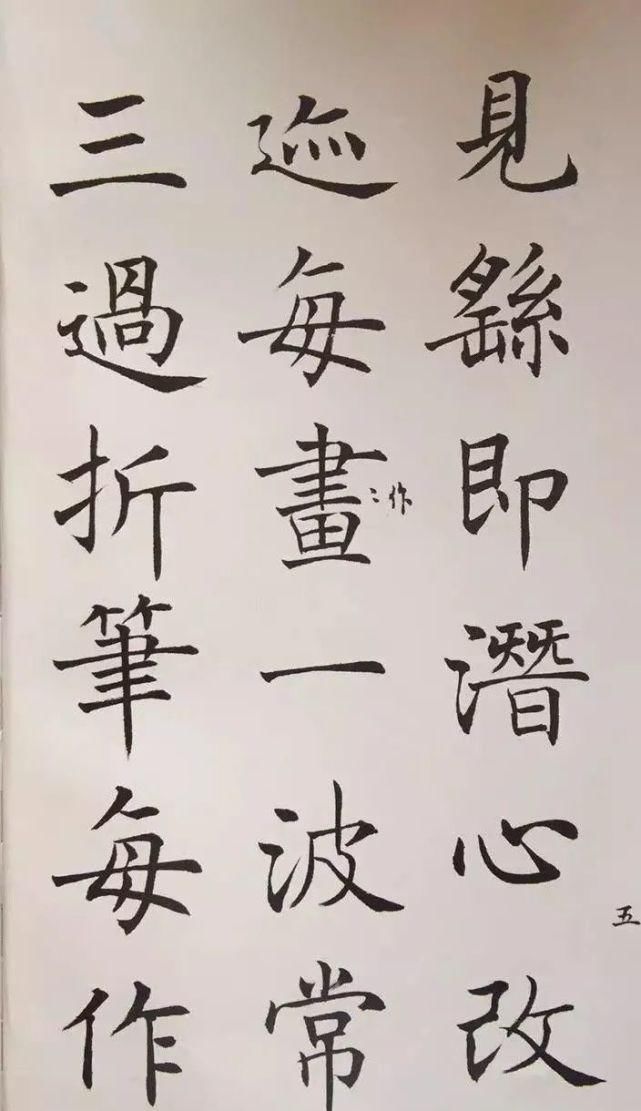 五
見繇即潛心改
迹每畫一波常
作
三過折筆每作